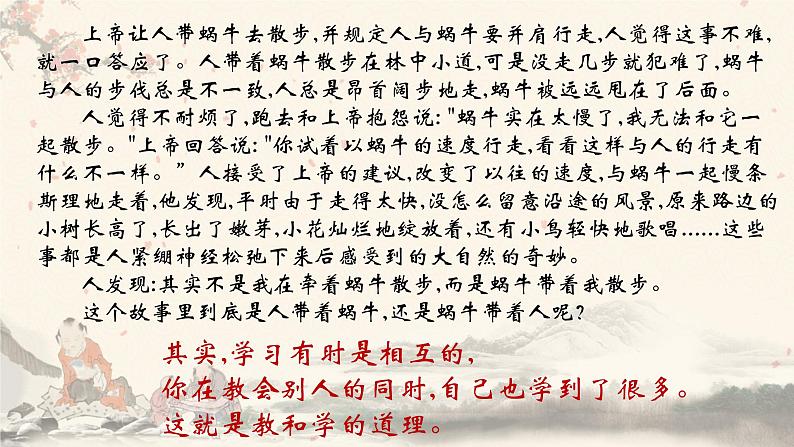 上帝让人带蜗牛去散步,并规定人与蜗牛要并肩行走,人觉得这事不难,
就一口答应了。人带着蜗牛散步在林中小道,可是没走几步就犯难了,蜗牛
与人的步伐总是不一致,人总是昂首阔步地走,蜗牛被远远甩在了后面。
人觉得不耐烦了,跑去和上帝抱怨说:"蜗牛实在太慢了,我无法和它一
起散步。"上帝回答说:"你试着以蜗牛的速度行走,看看这样与人的行走有
什么不一样。”人接受了上帝的建议,改变了以往的速度,与蜗牛一起慢条
斯理地走着,他发现,平时由于走得太快,没怎么留意沿途的风景,原来路边的
小树长高了,长出了嫩芽,小花灿烂地绽放着,还有小鸟轻快地歌唱……这些
事都是人紧绷神经松弛下来后感受到的大自然的奇妙。
人发现:其实不是我在牵着蜗牛散步,而是蜗牛带着我散步。
这个故事里到底是人带着蜗牛,还是蜗牛带着人呢?
其实,学习有时是相互的,
你在教会别人的同时,自己也学到了很多。
这就是教和学的道理。